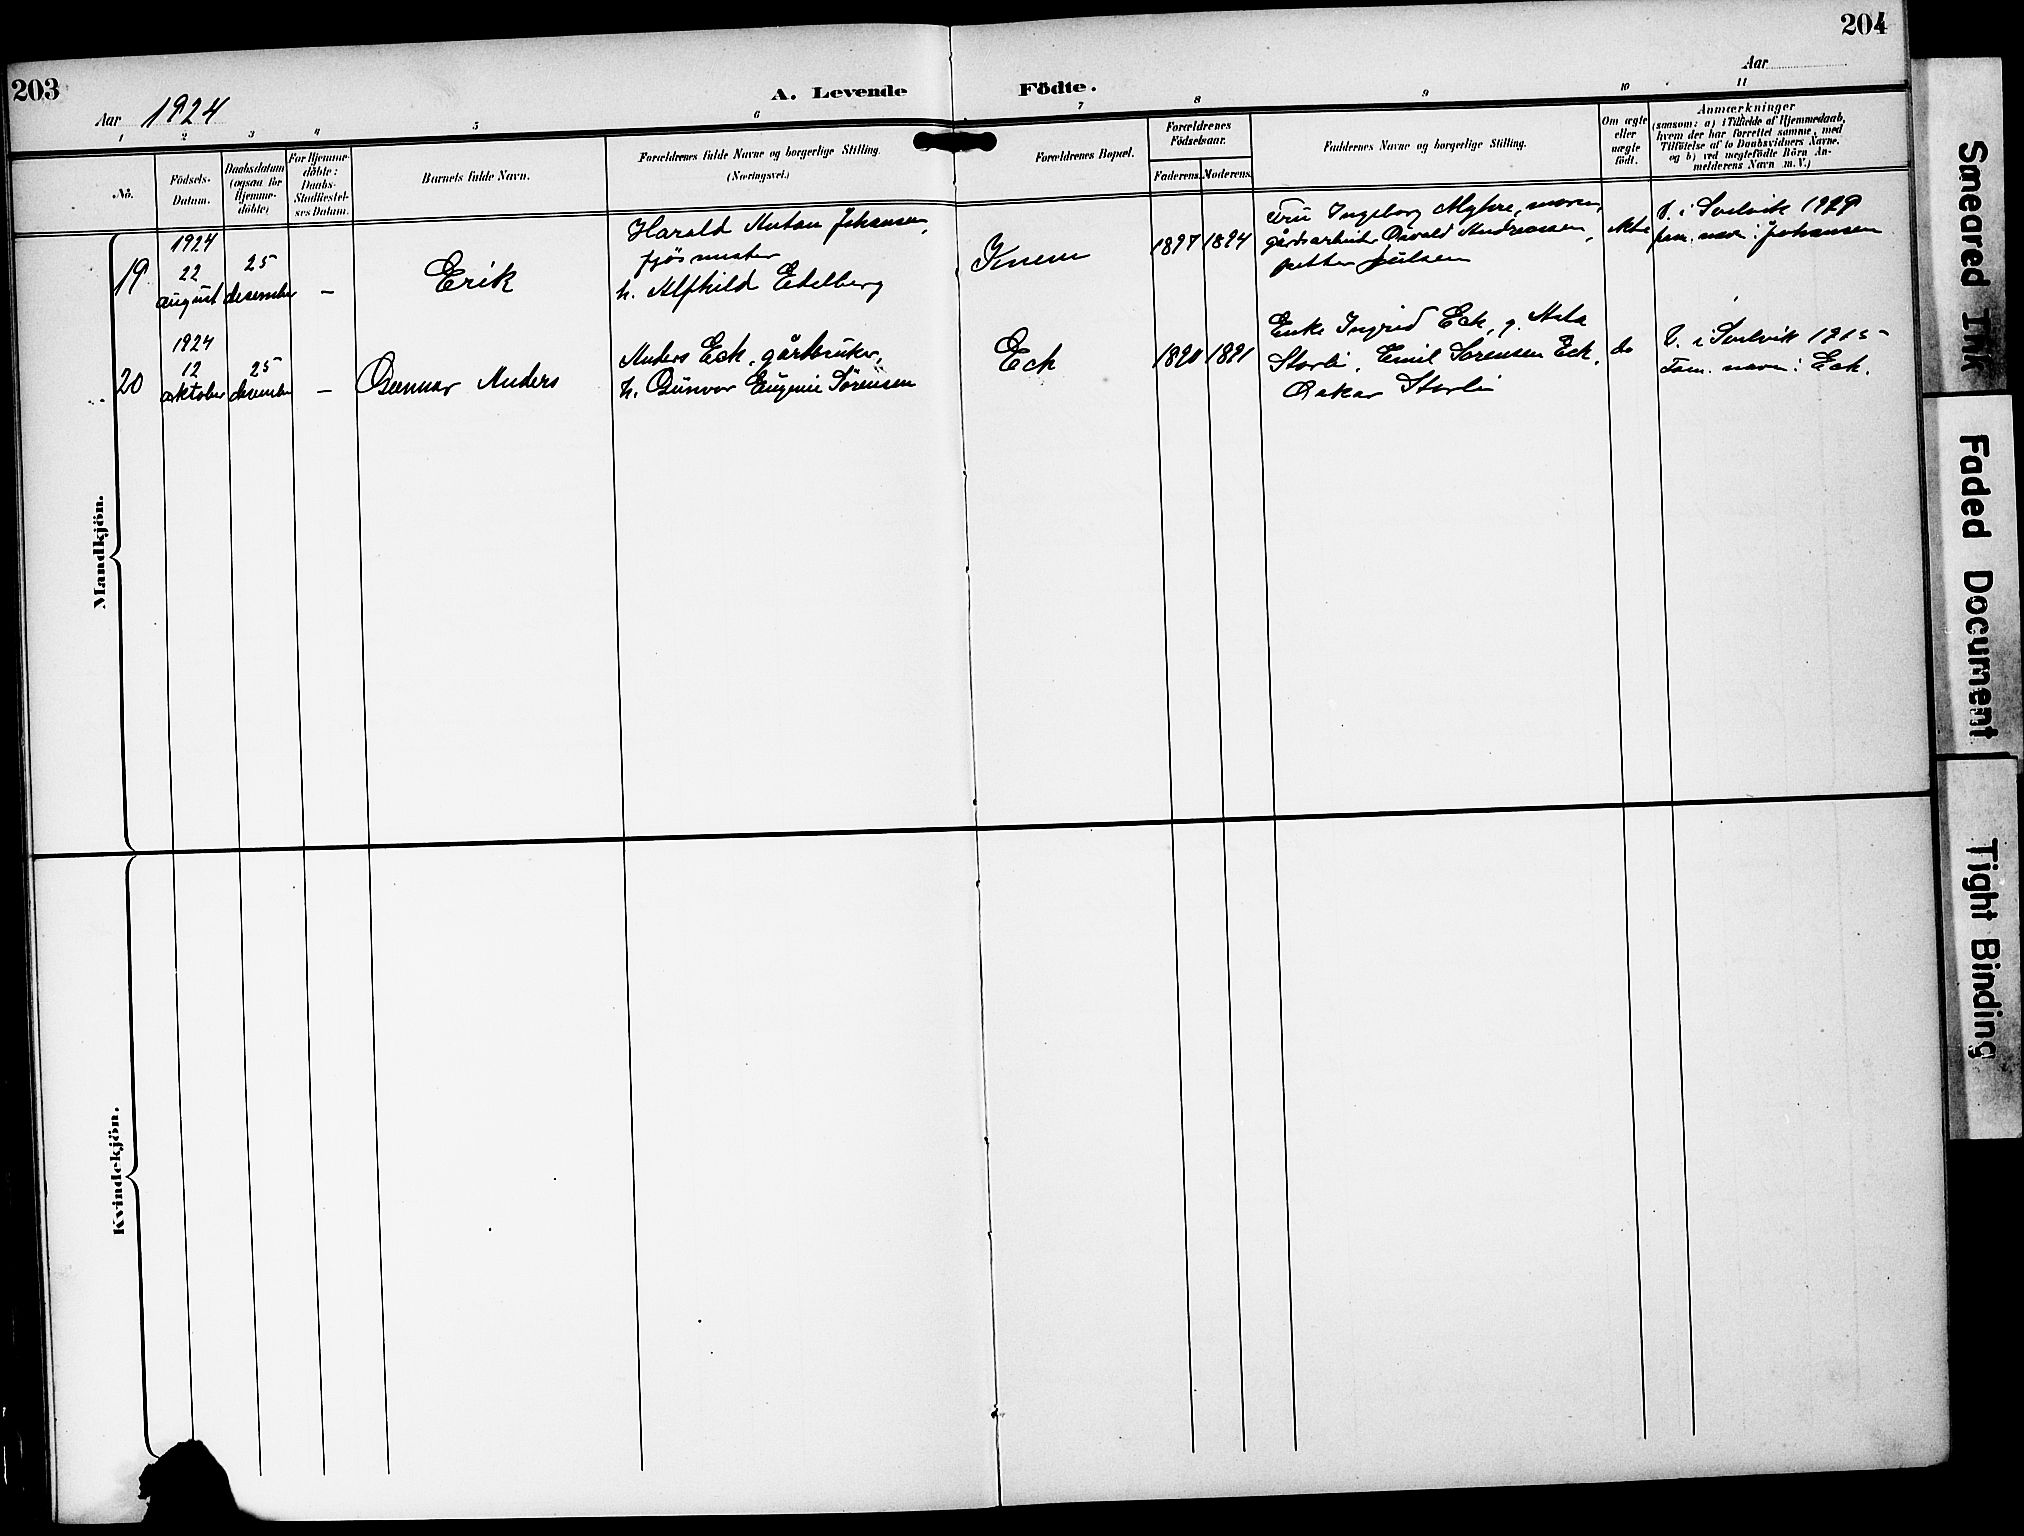 203
204
Aar 1924
A. Levende Födte.
Aar
1 2 3 4 5 6 7 8 9 10 11
No.
Födsels-
Datum.
Daabsdatum
(ogsaa for
Hjemme-
döbte)
For Hjemme-
döbte:
Daabs-
Stadfæstel-
ses Datum.
Barnets fulde Navn.
Forældrenes fulde Navne og borgerlige Stilling.
(Næringsvei.)
Forældrenes Bopæl.
Forældrenes
Födselsaar.
Faderens. Moderens.
Faddernes Navne og borgerlige Stilling.
Om ægte
eller
uægte
födt.
Anmærkninger
(saasom: a) i Tilfælde af Hjemmedaab,
hvem der har forrettet samme, med
Tilföielse af to Daabsvidners Navne,
og b) ved uægtefödte Börn An-
melderens Navn m. V.)
Mandkjön.
19
1924
22
august
25
desember
–
Erik
Harald Anton Johansen,
fjösmester
h. Alfhild Edelberg
Knem
1897
1894
Fru Ingeborg Myhre, moren,
gårdsarbeider Osvald Andreassen,
petter Juelsen
Ekte
V. i Svelvik 1929
fam. navn: Johansen
20
1924
12
oktober
25
desember
–
Gunnar Anders
Anders Eck, gårdbruker,
h. Gunvor Eugenie Sörensen
Eck
1891
Enke Ingrid Eck, g. Asta
Storli, Emil Sorensen Eck,
Oskar Storli
do
V. i Svelvik 1915
Fam. navn: Eck.
Kvindekjön.
Smeared Ink
Faded Document
Tight Binding